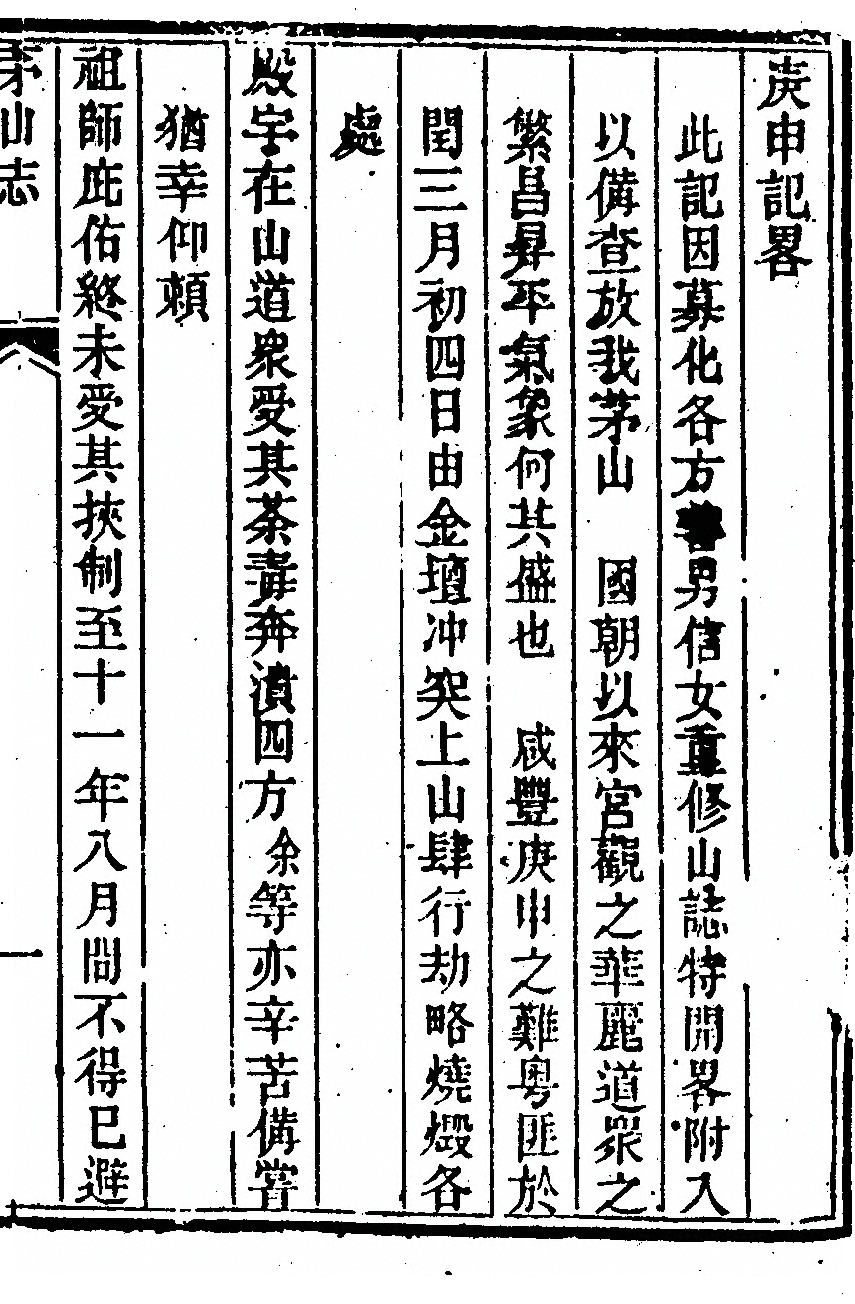 庚申記畧
此記因募化各方善男信女重修山誌特開畧附入
以備查放我茅山 國朝以來宮觀之華麗道衆之
繁昌昇平氣象何其盛也 咸豐庚申之難粵匪於
閏三月初四日由金壇冲突上山肆行劫略燒燬各
處
殿宇在山道衆受其荼毒奔潰四方余等亦辛苦備嘗
猶幸仰賴
祖師庇佑終未受其挾制至十一年八月間不得已避
茅山志
一